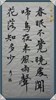 春眠不覺曉處々聞
啼鳥夜來風雨聲
花落知多少